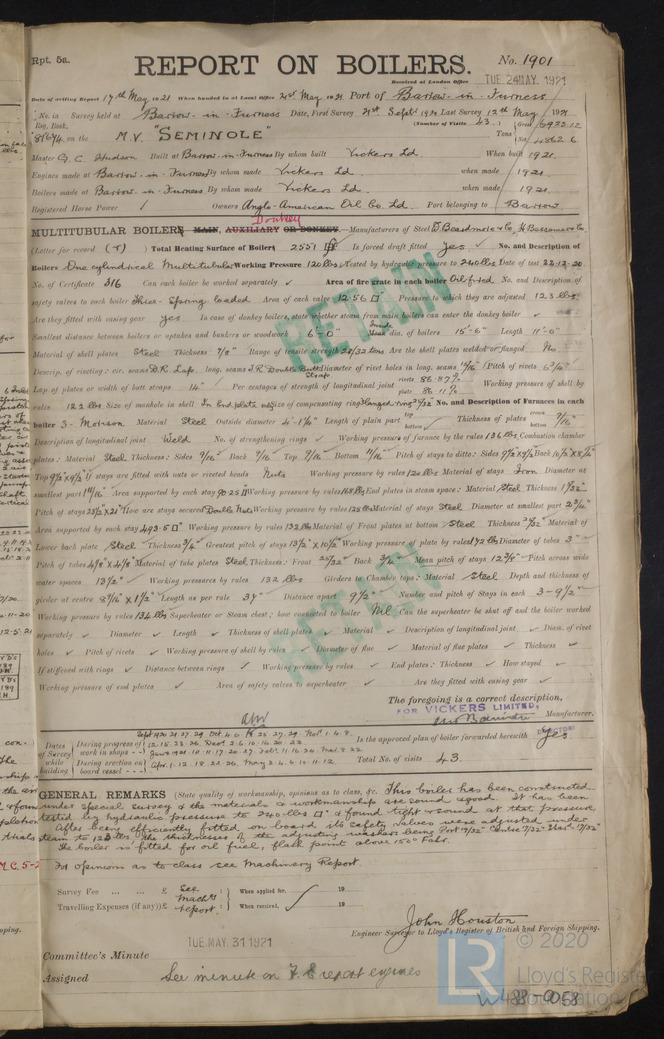 Rpt. 5a.
REPORT ON BOILERS.
No. 1901
Received at London Office TUE 24 MAY. 1921
Date of writing Report 17th May 1921 When handed in at Local Office 21st May 1921 Port of Barrow-in-Furness
No. in Reg. Book. Survey held at Barrow-in-Furness Date, First Survey 21st Septr 1920 Last Survey 12th May 1921
on the M.V. "SEMINOLE" (Number of Visits 43.) Tons Gross Net
Master G. C. Hudson Built at Barrow-in-Furness By whom built Vickers Ld. When built 1921.
Engines made at Barrow-in-Furness By whom made Vickers Ld. when made 1921.
Boilers made at Barrow-in-Furness By whom made Vickers Ld. when made 1921.
Registered Horse Power Owners Anglo-American Oil Co. Ld. Port belonging to Barrow
Donkey
MULTITUBULAR BOILERS MAIN, AUXILIARY OR DONKEY. Manufacturers of Steel D. Beardmore & Co,
(Letter for record (r)) Total Heating Surface of Boilers 2551 Is forced draft fitted Yes ✓ No. and Description of
Boilers One cylindrical Multitubular Working Pressure 120 lbs Tested by hydraulic pressure to 240 lbs Date of test 22.12.20
No. of Certificate 316 Can each boiler be worked separately ✓ Area of fire grate in each boiler Oil fired No. and Description of
safety valves to each boiler Three - Spring loaded Area of each valve 12.56 □" Pressure to which they are adjusted 123 lbs
Are they fitted with easing gear yes In case of donkey boilers, state whether steam from main boilers can enter the donkey boiler ✓
Smallest distance between boilers or uptakes and bunkers or woodwork 6'-0" Inside Mean dia. of boilers 15'-6" Length 11'-0"
Material of shell plates Steel Thickness 7/8" Range of tensile strength 28/32 tons Are the shell plates welded or flanged No
Descrip. of riveting: cir. seams D.R. Lap. long. seams T.R. Double Butt Strap Diameter of rivet holes in long. seams 15/16 Pitch of rivets
Lap of plates or width of butt straps 14" Per centages of strength of longitudinal joint rivets 86.87% plate 86.11% Working pressure of shell by
rules 122 lbs Size of manhole in shell In end plate Size of compensating ring Flanged No. and Description of Furnaces in each
boiler 3 - Morison Material Steel Outside diameter 4'-1 1/4" Length of plain part top bottom Thickness of plates crown bottom 9/16"
Description of longitudinal joint Weld No. of strengthening rings ✓ Working pressure of furnace by the rules 136 lbs Combustion chamber
plates: Material Steel Thickness: Sides 9/16" Back 9/16" Top 9/16" Bottom 11/16" Pitch of stays to ditto: Sides 9 1/2 x 9 1/2 Back
Top 9 1/2 x 9 1/2 If stays are fitted with nuts or riveted heads Nuts Working pressure by rules 120 lbs Material of stays Iron Diameter at
smallest part Area supported by each stay 90.25 □" Working pressure by rules 168 lbs End plates in steam space: Material Steel Thickness
Pitch of stays How are stays secured Double Nuts Working pressure by rules 125 lbs Material of stays Steel Diameter at smallest part
Area supported by each stay 493.5 □" Working pressure by rules 132 lbs Material of Front plates at bottom Steel Thickness Material of
Lower back plate Steel Thickness 3/4" Greatest pitch of stays 13 1/2" x 10 1/2" Working pressure of plate by rules 172 lbs Diameter of tubes 3"
Pitch of tubes 4 1/8" x 4 1/8" Material of tube plates Steel Thickness: Front 25/32" Back 3/4" Mean pitch of stays 12 3/8" Pitch across wide
water spaces 13 1/2" Working pressures by rules 132 lbs Girders to Chamber tops: Material Steel Depth and thickness of
girder at centre 8 9/16" x 1 1/2" Length as per rule 34" Distance apart 9 1/2" Number and pitch of Stays in each 3 - 9 1/2"
Working pressure by rules 134 lbs Superheater or Steam chest; how connected to boiler Nil Can the superheater be shut off and the boiler worked
separately ✓ Diameter ✓ Length ✓ Thickness of shell plates ✓ Material ✓ Description of longitudinal joint ✓ Diam. of rivet
holes ✓ Pitch of rivets ✓ Working pressure of shell by rules ✓ Diameter of flue ✓ Material of flue plates ✓ Thickness ✓
If stiffened with rings ✓ Distance between rings ✓ Working pressure by rules ✓ End plates: Thickness ✓ How stayed ✓
Working pressure of end plates ✓ Area of safety valves to superheater ✓ Are they fitted with easing gear ✓
RETAIN
RETAIN
The foregoing is a correct description,
FOR VICKERS LIMITED,
Manufacturer.
Dates of Survey while building
During progress of work in shops - -
During erection on board vessel - - - Apr. 1. 12. 18. 22. 26. May 2. 4. 6. 10. 11. 12
Is the approved plan of boiler forwarded herewith Yes
Total No. of visits 43.
GENERAL REMARKS (State quality of workmanship, opinions as to class, &c. This boiler has been constructed
under special survey & the materials & workmanship are sound & good. It has been
tested by hydraulic pressure to 240 lbs □" & found tight & sound at that pressure,
After being efficiently fitted on board, its safety valves were adjusted under
steam to 123 lbs. The thicknesses of the adjusting washers being Port 17/32" Centre 7/32" Star'd 17/32"
The boiler is fitted for oil fuel, flash point above 150° Fahr.
For opinion as to class see Machinery Report.
Survey Fee ... ... £ See When applied for, 19
Travelling Expenses (if any) £ Mach'y report. When received, 19
John Houston
Engineer Surveyor to Lloyd's Register of British and Foreign Shipping.
Committee's Minute TUE. MAY. 31 1921
Assigned See minute on F.E. report engines
LR © 2020
Lloyd's Register
Foundation
W488-0058